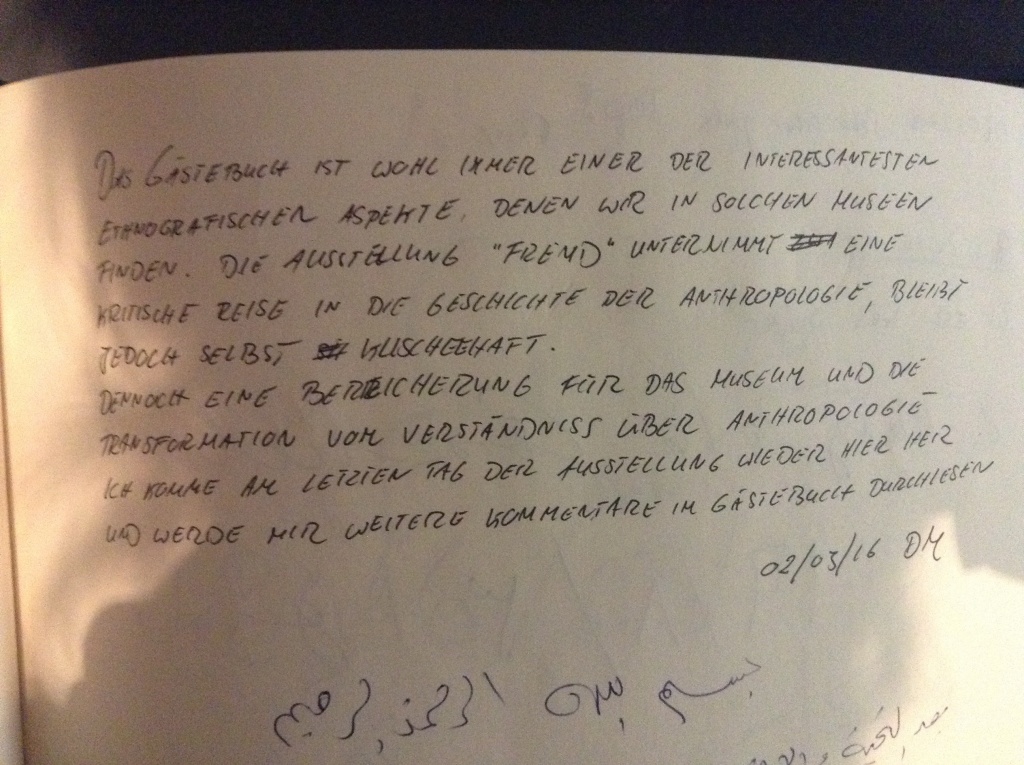 DAS GÄSTEBUCH IST WOHL IMMER EINER DER INTERESSANTESTEN
ETHNOGRAFISCHEN ASPEKTE, DENEN WIR IN SOLCHEN MUSEEN
FINDEN. DIE AUSSTELLUNG "FREMD" UNTERNIMMT EINE
KRITISCHE REISE IN DIE GESCHICHTE DER ANTHROPOLOGIE, BLEIBT
JEDOCH SELBST KLISCHEEHAFT.
DENNOCH EINE BEREICHERUNG FÜR DAS MUSEUM UND DIE
TRANSFORMATION VOM VERSTÄNDNISS ÜBER ANTHROPOLOGIE
ICH KOMME AM LETZTEN TAG DER AUSSTELLUNG WIEDER HIER HER
UND WERDE MIR WEITERE KOMMENTARE IM GÄSTEBUCH DURCHLESEN
02/03/16 DM
بسم الله الرحمن الرحيم